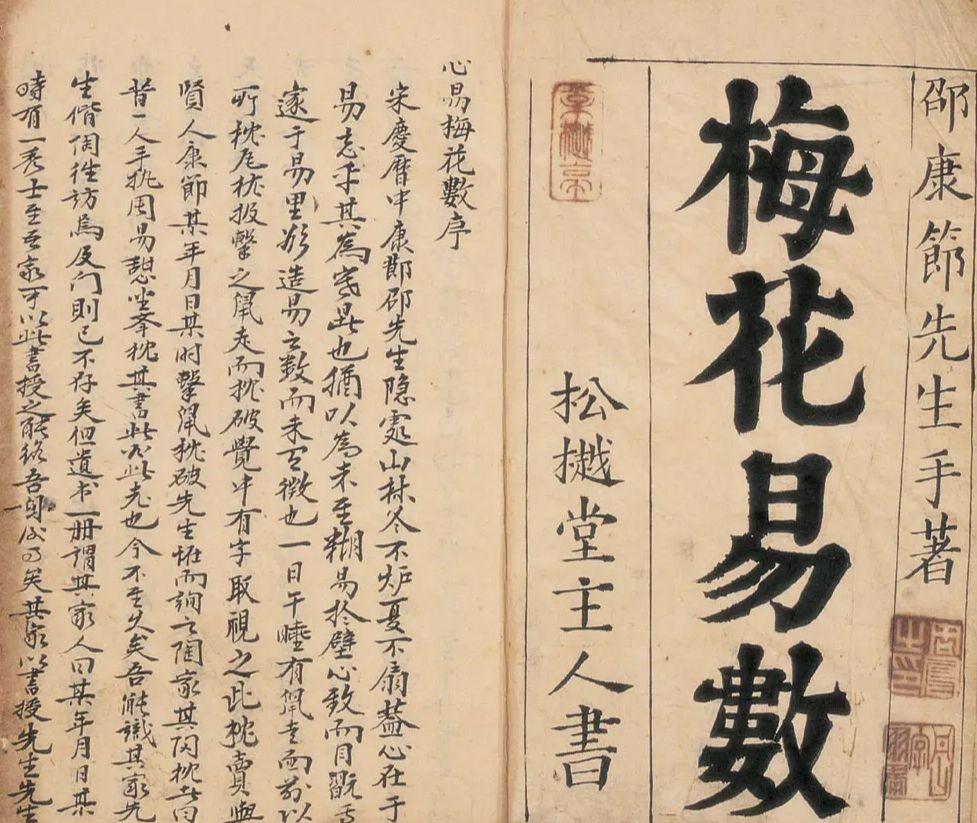 邵康節先生手著
梅花易數
松樾堂主人書
心易梅花數序
宋慶曆中康節邵先生隐處山林冬不炉夏不扇蓋心在于
易忘乎其為寒暑也猶以為未至糊易於壁心致而目翫焉
邃于易里欲造易之數而未有徵也一日午睡有鼠走而前以
所枕瓦枕投擊之鼠走而枕破覺中有字取視之此枕賣與
賢人康節某年月日某时擊鼠枕破先生怪而詢之陶家其枕者曰
昔一人手执周易憩坐奉枕其書此必此老也今不至久矣吾能識其家先
生偕陶徃訪焉及门則已不存矣但遺书一册謂其家人曰某年月日某
時有一秀士至吾家可以此書授之能終吾身矣其家以書授先生先生